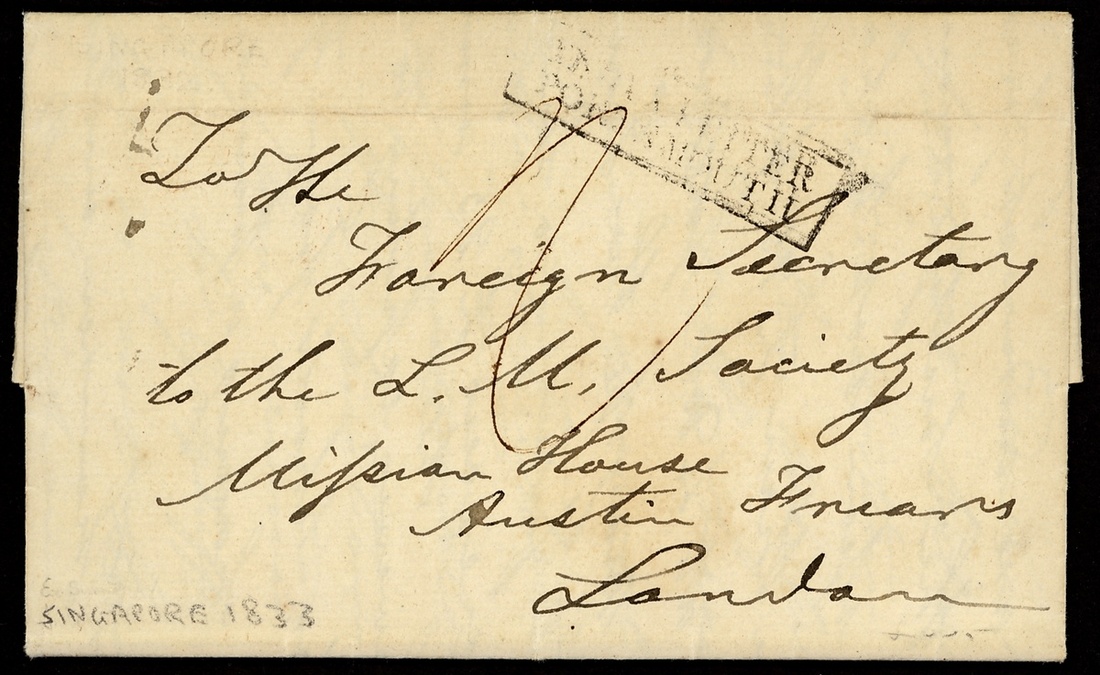 INDIA LETTER
PORTSMOUTH
To the
Foreign Secretary
to the L. M. Society
Miſsion House
Austin Friars
London
SINGAPORE 1833